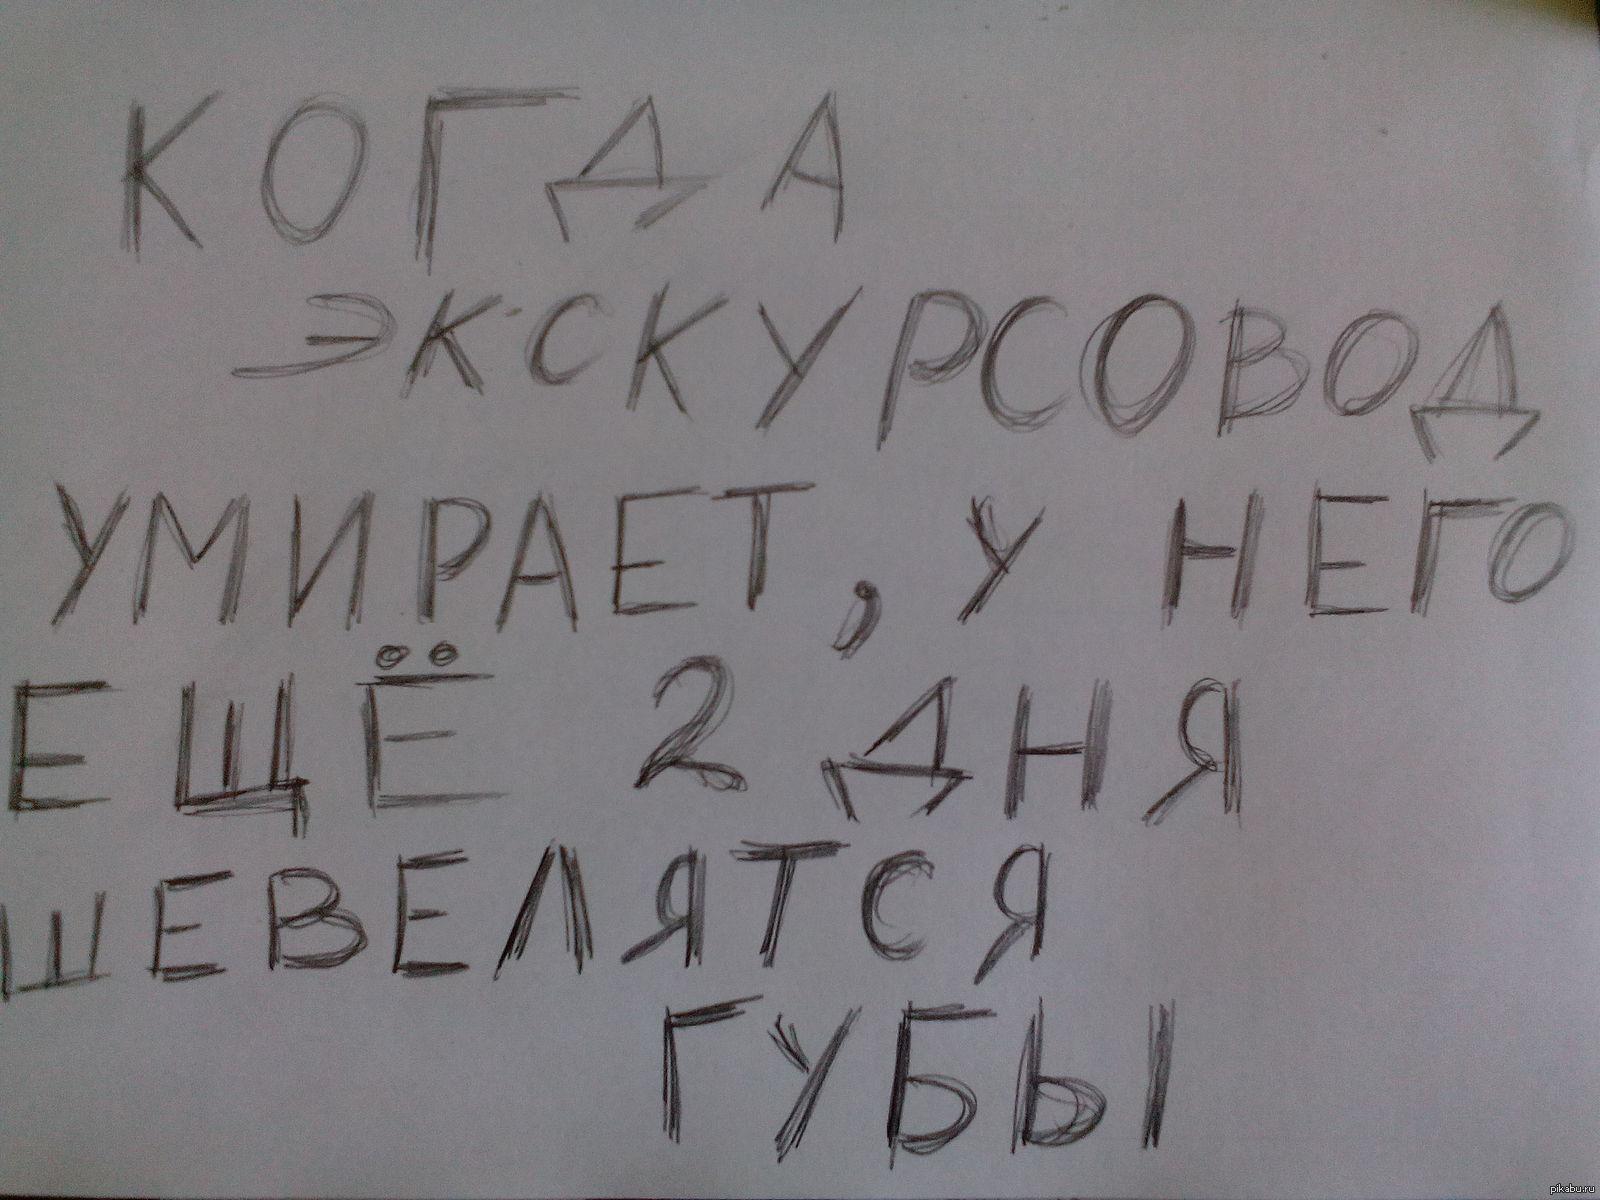 КОГДА
ЭКСКУРСОВОД
УМИРАЕТ, У НЕГО
ЕЩЁ 2 ДНЯ
ШЕВЕЛЯТСЯ
ГУБЫ
pikabu.ru